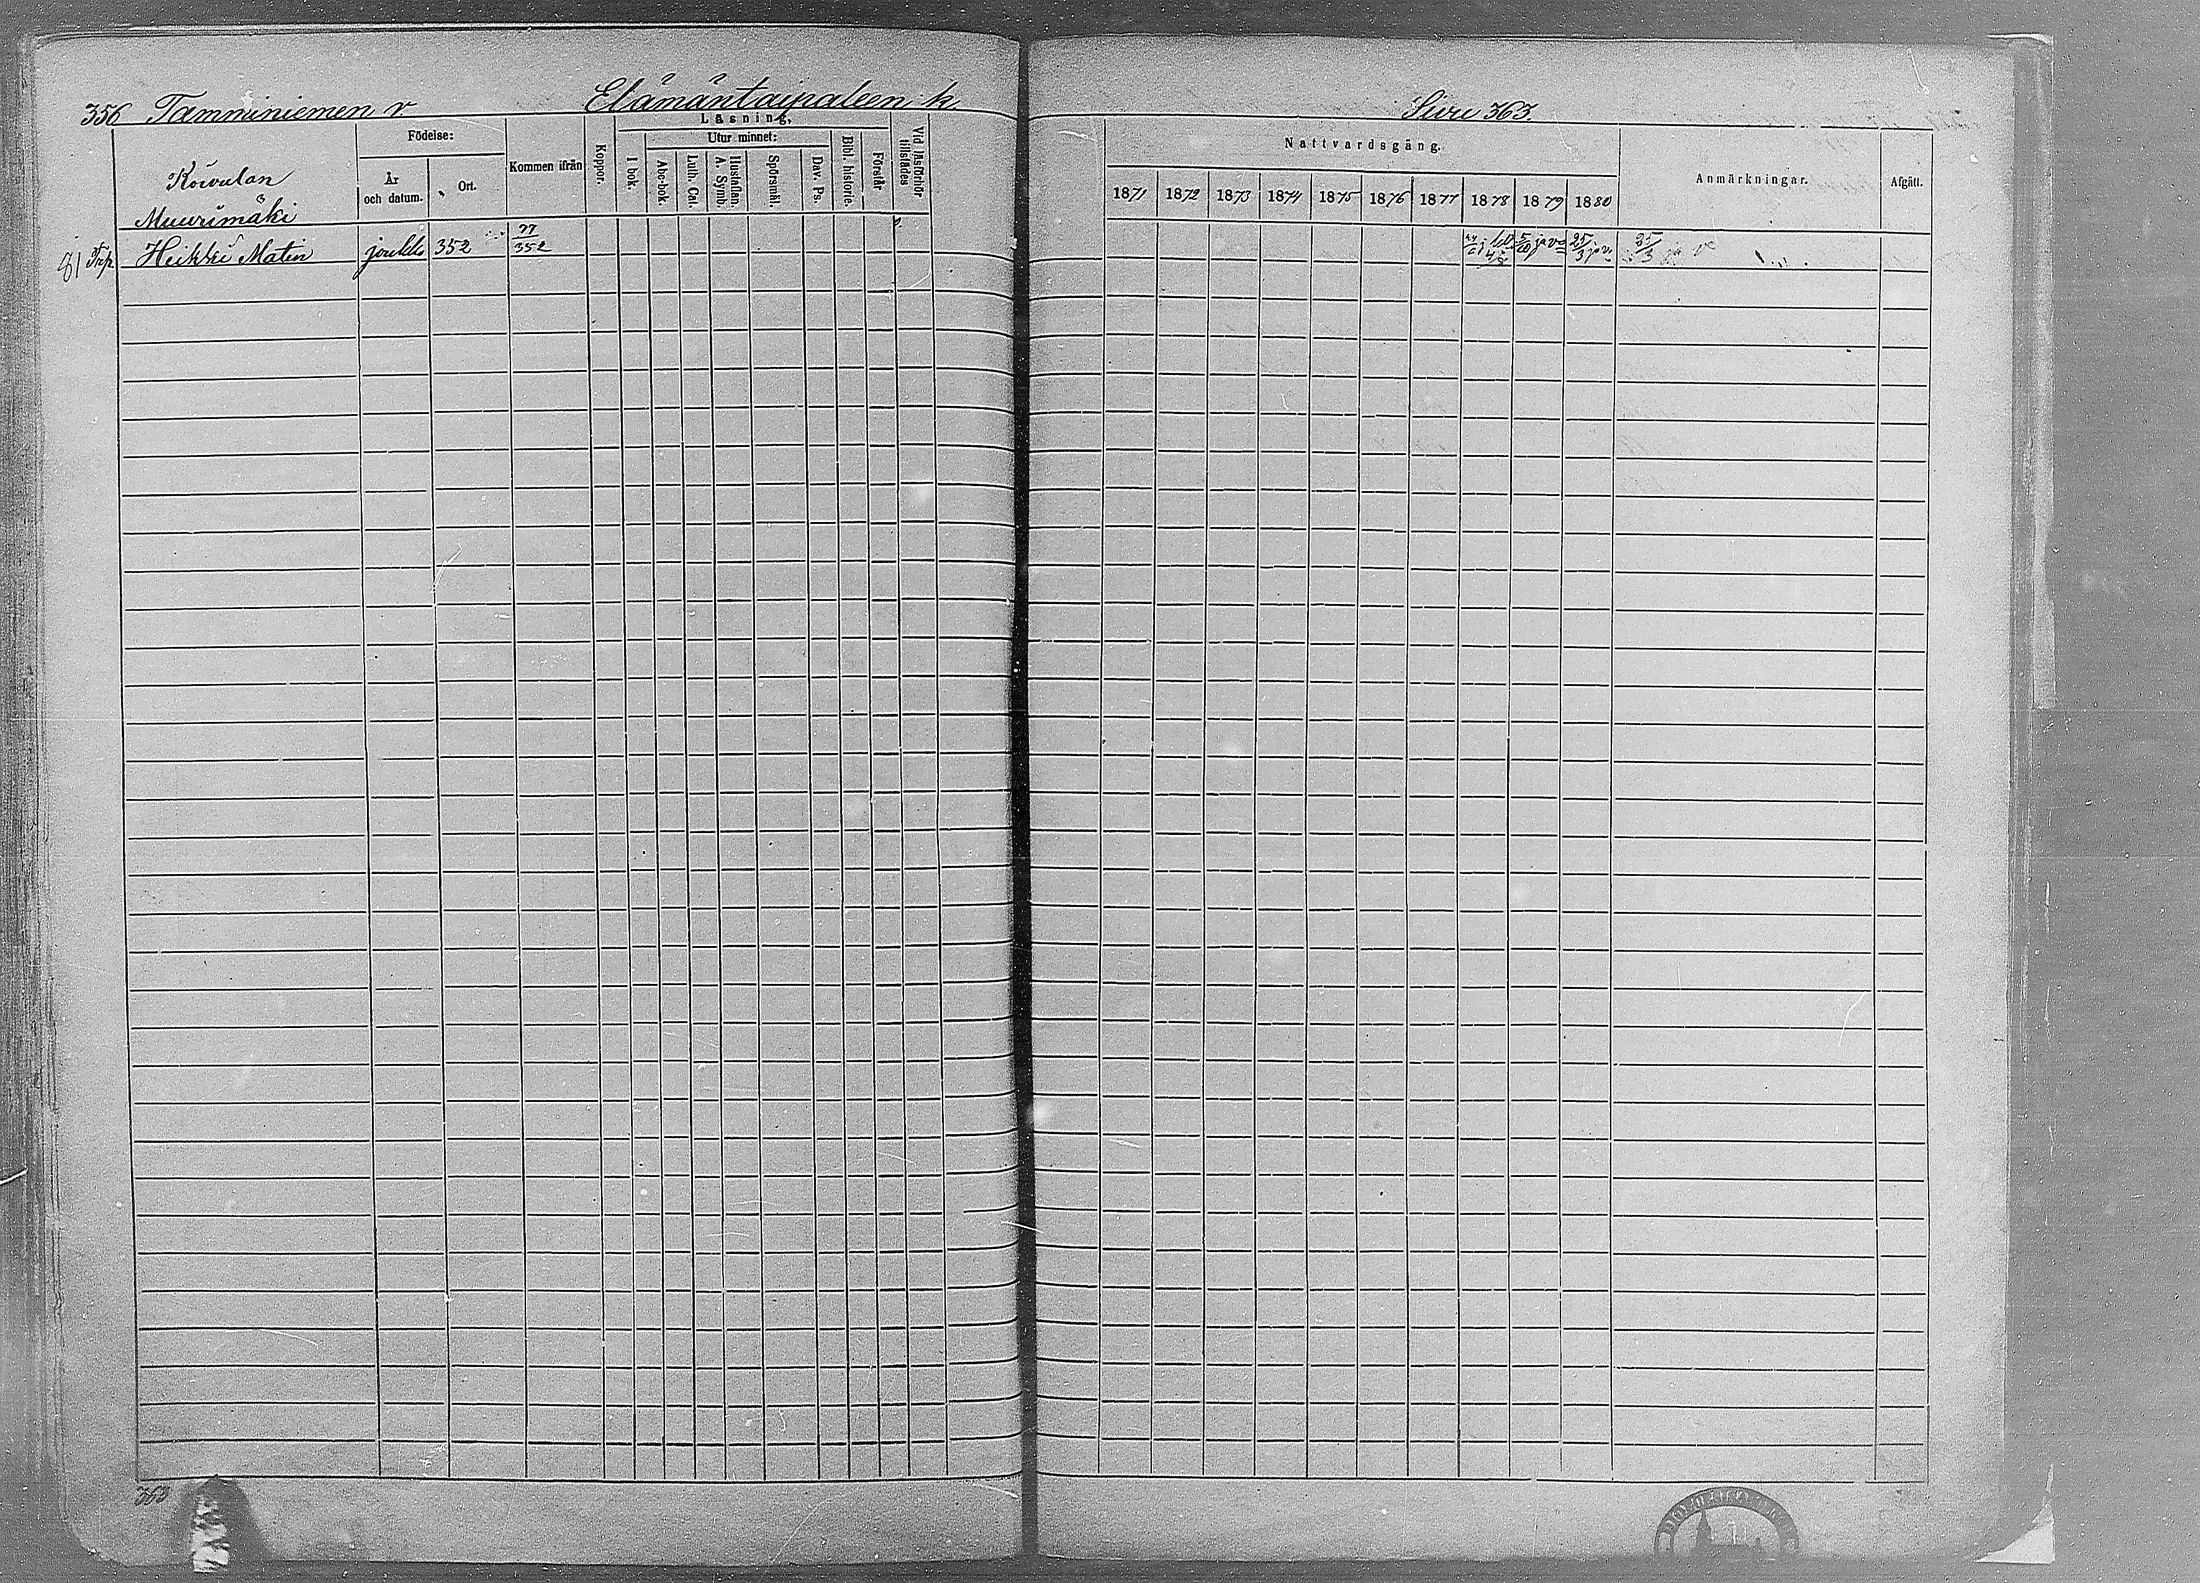 356 Tamminiemen v. Elämäntaipaleen k.
Sivu 363.
Läsning,
Födelse:
Utur minnet:
Kommen ifrån
Koppor.
I bok.
Abc-bok.
Luth. Cat.
Hustaflan.
A. Symb.
Spörsmål.
Dav. Ps.
Bibl. historie.
Förstår
Vid läsförhör
tillstädes
År
och datum.
Ort.
Koivulan
Muurimäki
Nattvardsgång.
1871 1872 1873 1874 1875 1876 1877 1878 1879 1880
Anmärkningar.
Afgått.
81 Heikki Matin joukko 352 77/352
25/3 25/3
363